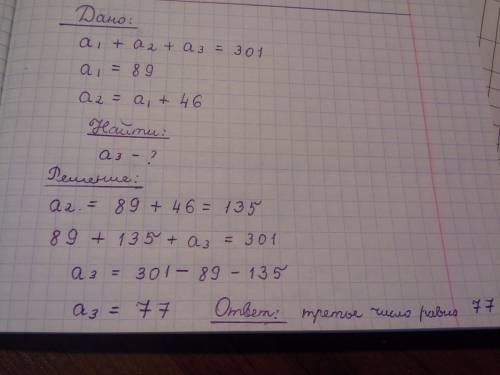 Дано:
a1 + a2 + a3 = 301
a1 = 89
a2 = a1 + 46
Найти:
a3 - ?
Решение:
a2 = 89 + 46 = 135
89 + 135 + a3 = 301
a3 = 301 - 89 - 135
a3 = 77 Ответ: третье число равно 77